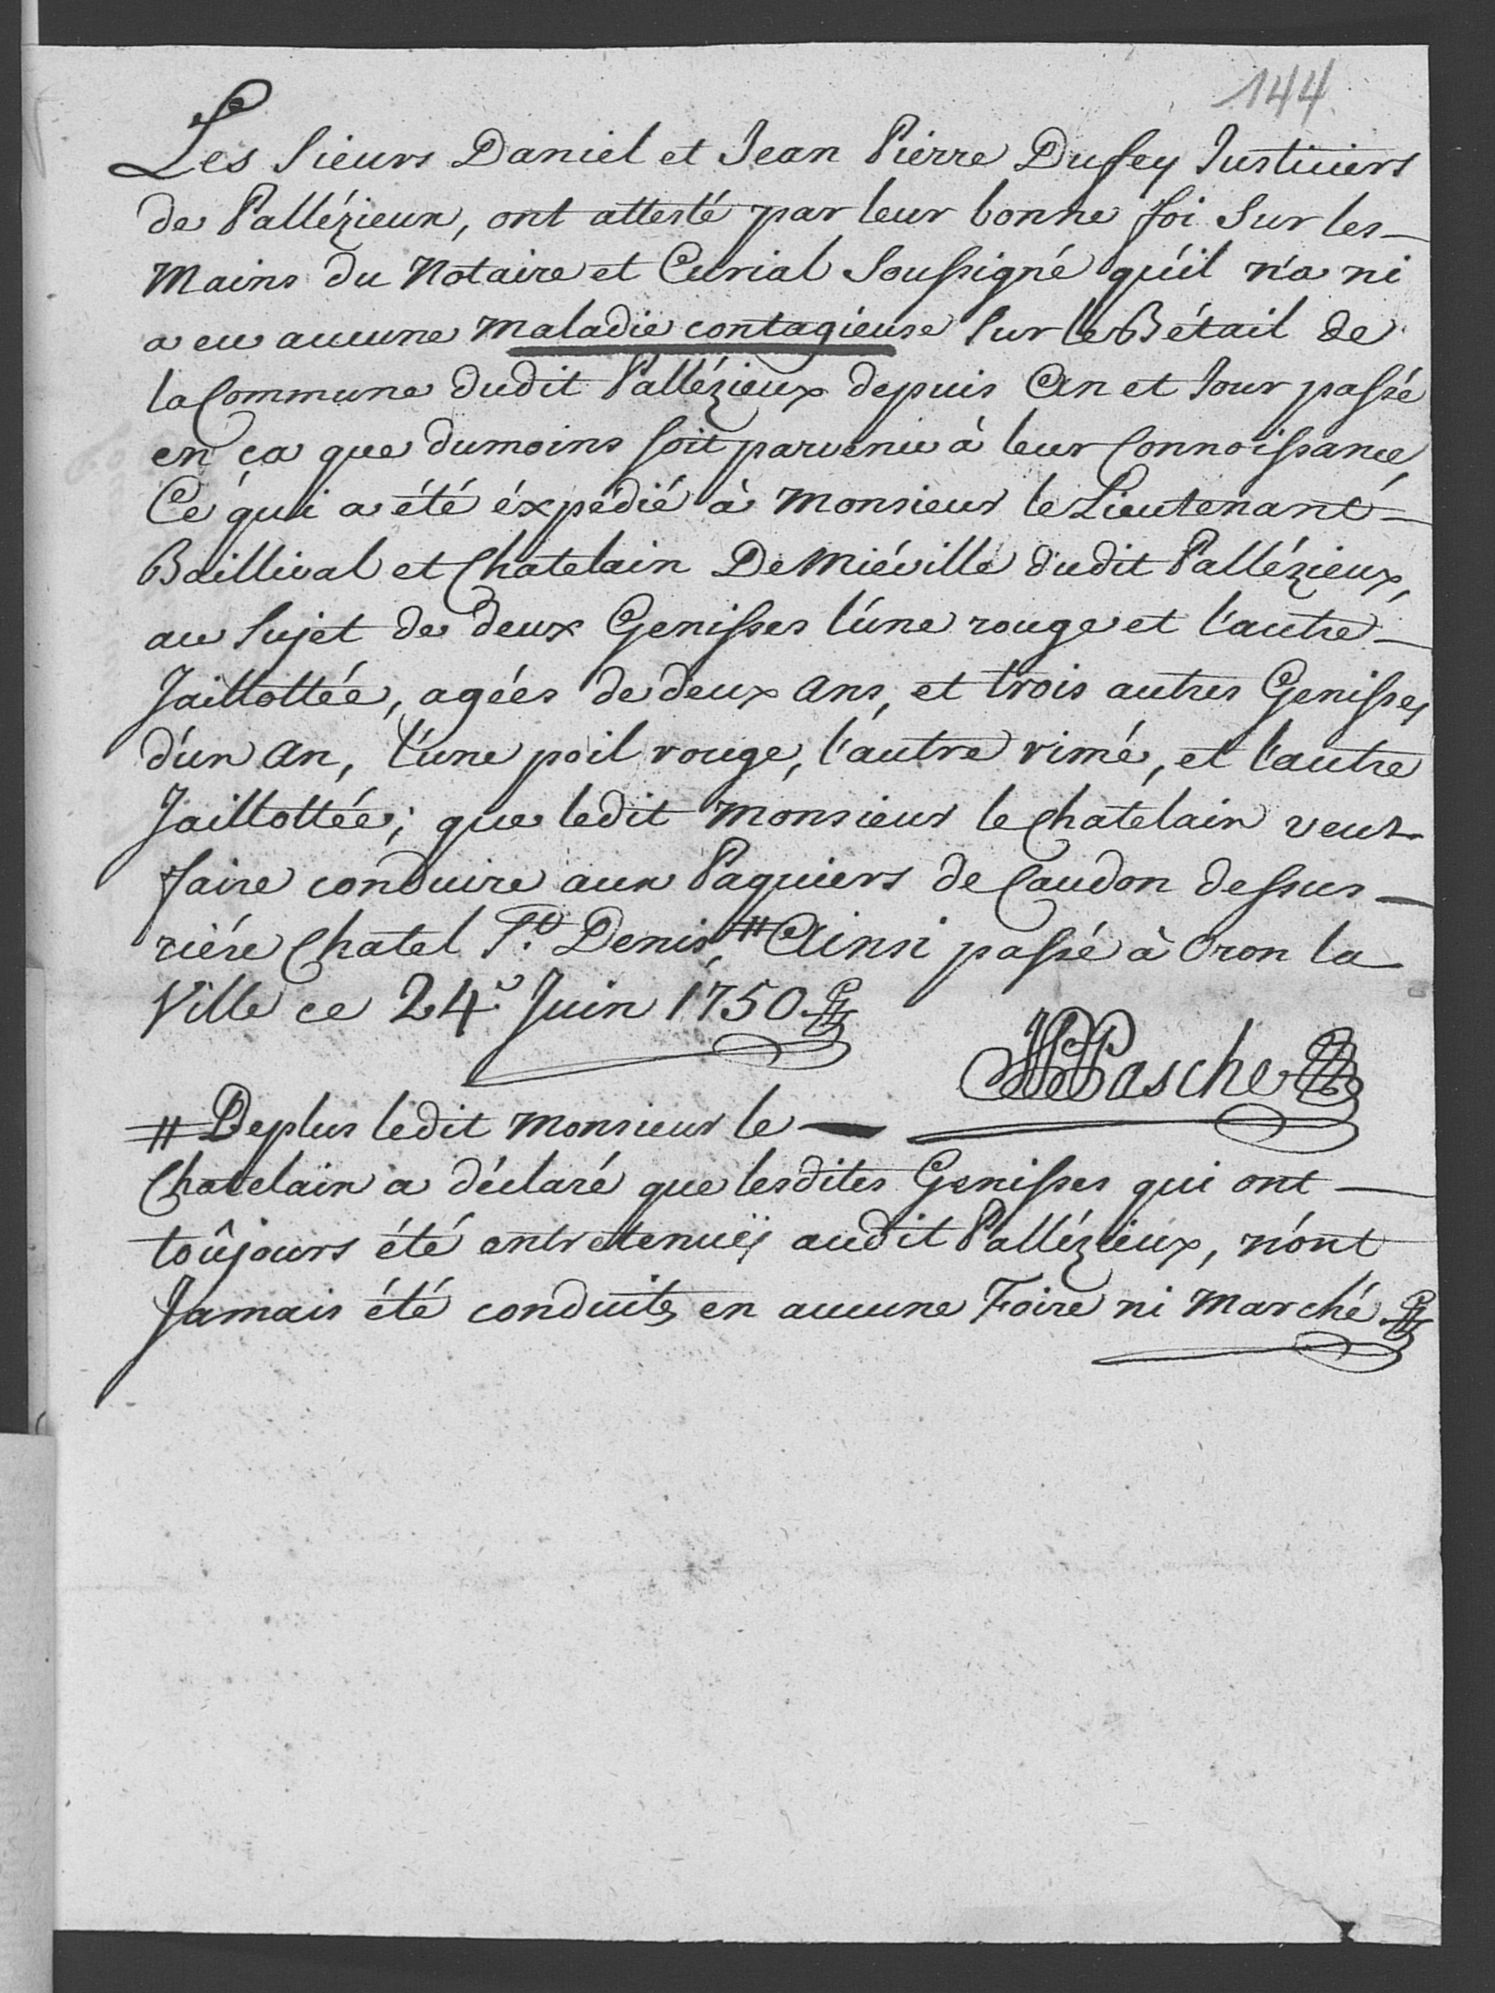 144
Les Sieurs Daniel et Jean Pierre Dufey Justiciers
de Pallézieux, ont attesté par leur bonne foi Sur les
Mains du Notaire et Curial Soussigné qu'il n'a ni
a eu aucune Maladie contagieuse Sur le Bétail de
la Commune dudit Pallézieux depuis An et Jour passé
en ça que dumoins soit parvenue à leur Connoissance,
Ce qui a été éxpédié à Monsieur le Lieutenant
Baillival et Chatelain DeMiéville dudit Pallézieux,
au Sujet de deux Genisses l'úne rouge et l'autre
Jaillottée, agées de deux Ans, et trois autres Genisses
d'un An, l'une poil rouge, l'autre rimé, et l'autre
Jaillottée; que ledit Monsieur le Chatelain veut
faire conduire aux Paquiers de Caudon dessus
riére Chatel St. Denis, # Ainsi passé à Oron la
Ville ce 24e Juin 1750
Pasche
# Deplus ledit Monsieur le
Chatelain a déclaré que lesdites Genisses qui ont
toûjours été entretenuës audit Pallézieux, n'ont
Jamais été conduites en aucune Foire ni Marché